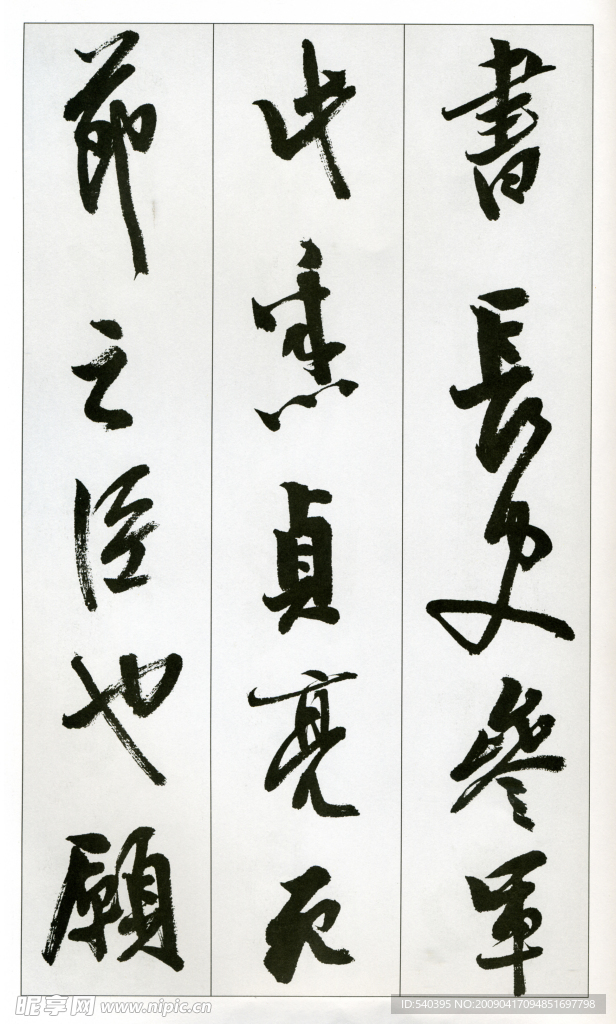 書長史參軍
此悉貞亮死
節之臣也願
昵享网 www.nipic.cn
ID:540395 NO:20090417094851697798